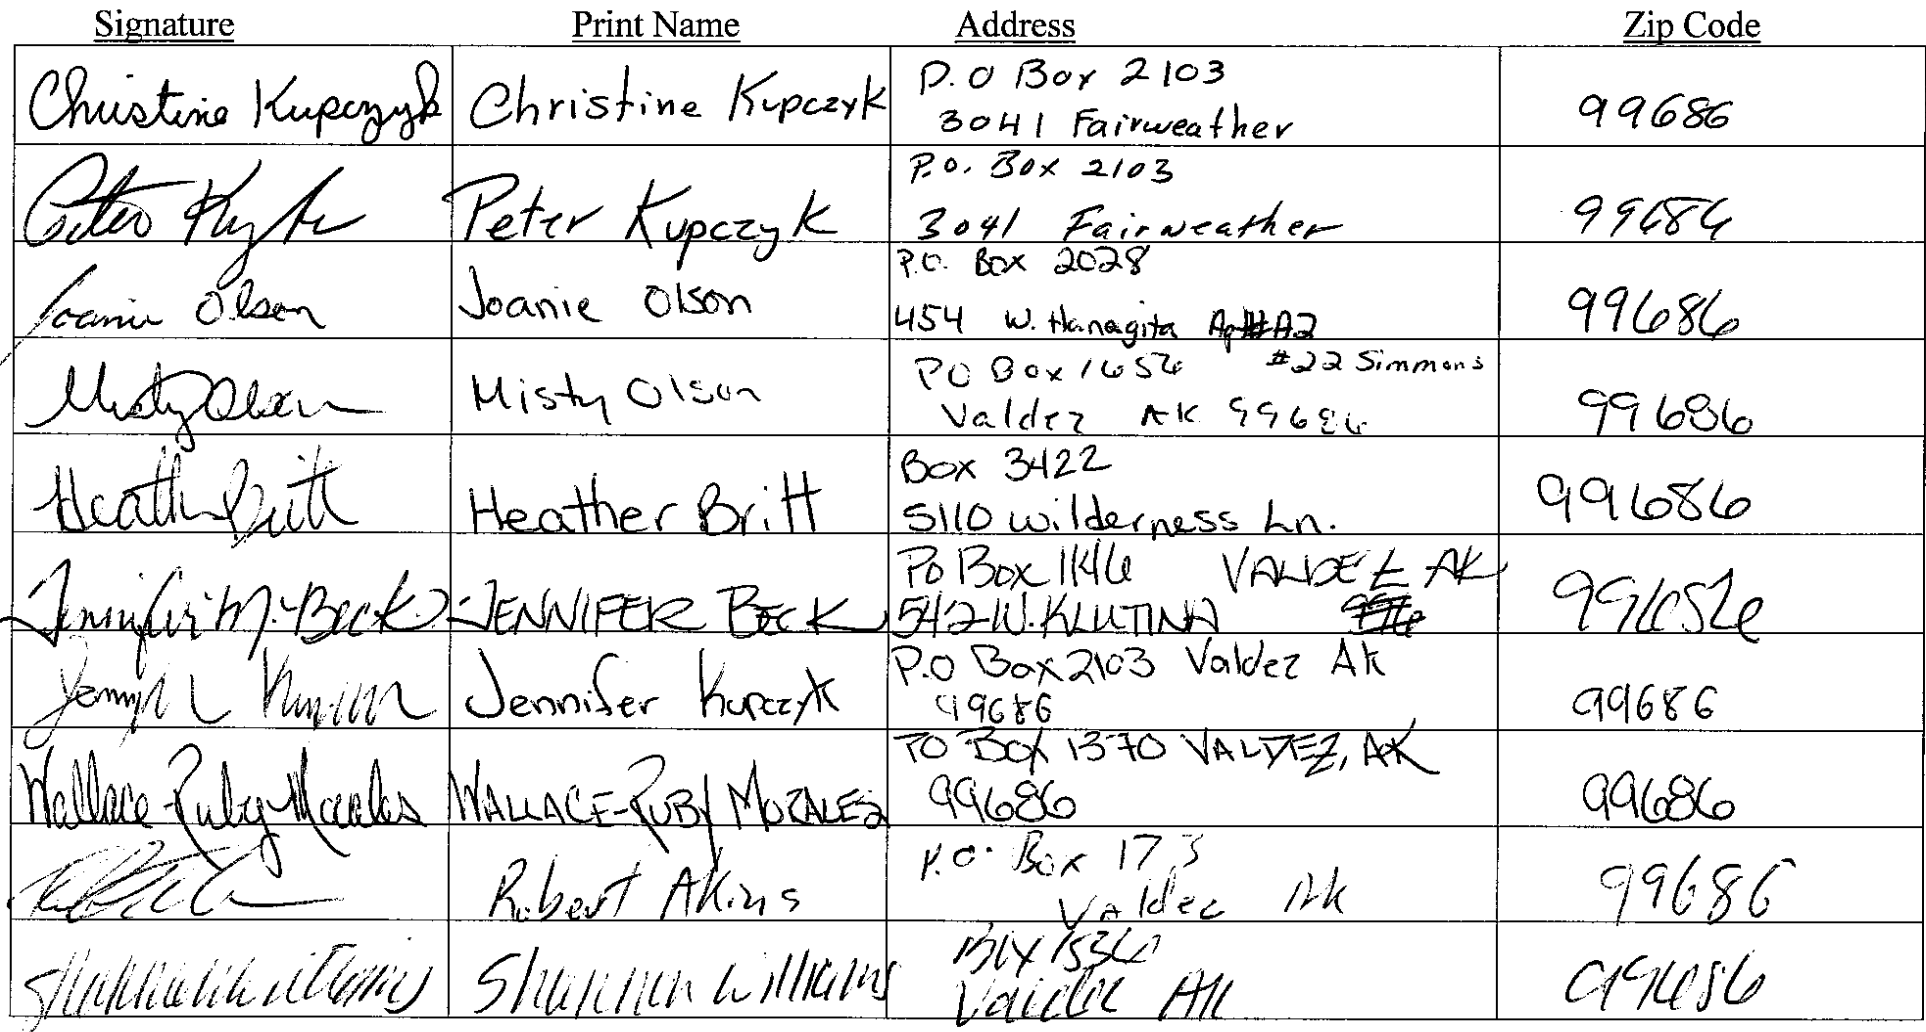 Signature Print Name Address Zip Code
Christine Kupczyk Christine Kupczyk P.O Box 2103
3041 Fairweather 99686
Peter Kupczyk P.O. Box 2103
3041 Fairweather 99686
Joanie Olson Joanie Olson P.O. Box 2028
454 W. Hanagita Apt#A2 99686
Misty Olson Misty Olson PO Box 1656 #22 Simmons
Valdez AK 99686 99686
Heather Britt Heather Britt Box 3422
5110 Wilderness Ln. 99686
Jennifer M. Beck JENNIFER BECK PO Box 1146 VALDEZ AK
542 W. KLUTINA 99686
Jennifer Kupczyk P.O Box 2103 Valdez Ak
99686 99686
Wallace-Ruby Morales WALLACE-RUBY MORALES PO Box 1370 VALDEZ, AK
99686 99686
Robert Akins P.O. Box 173
Valdez Ak 99686
Shannon Williams Shannon Williams Box 1536
Valdez AK 99686